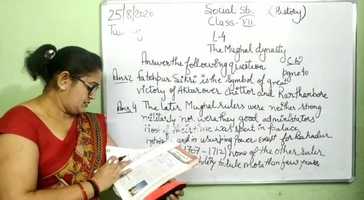 25/8/2020 Social St. (History)
Class-VII
L-4
The Mughal dynasty
Answer the following question
Ans2 Fatehpur Sikri is the symbol of great
victory of Akbar over Chittor and Ranthambore
Ans4 The later Mughal rulers were neither strong
militarily nor were they good administrators
time was spent in palace
and in usurping power except for Bahadur
(1707-1712) none of the other ruler
ability to rule more than few years